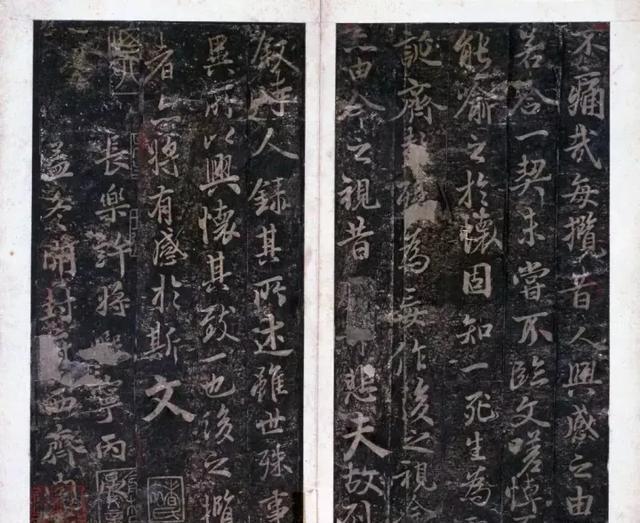 不痛哉每攬昔人興感之由
若合一契未嘗不臨文嗟悼
能喻之於懷固知一死生為
誕齊彭殤為妄作後之視今
亦由今之視昔悲夫故列
敘時人錄其所述雖世殊事
異所以興懷其致一也後之攬
者亦將有感於斯文
長樂許將熙寧丙
孟冬開封府西齋